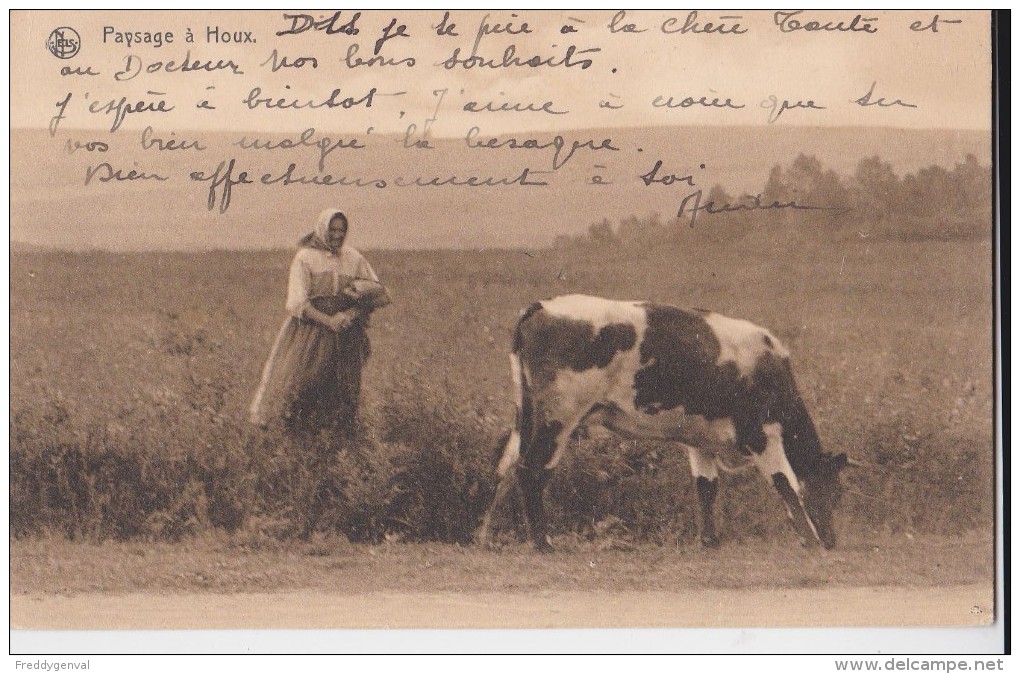 NELS Paysage à Houx. Dites je te prie à la chère Tante et
au Docteur nos bons souhaits.
J'espère à bientôt, J'aime à croire que tu
vos bien malgré la besogne.
Bien affectueusement à toi
Freddygenval
www.delcampe.net